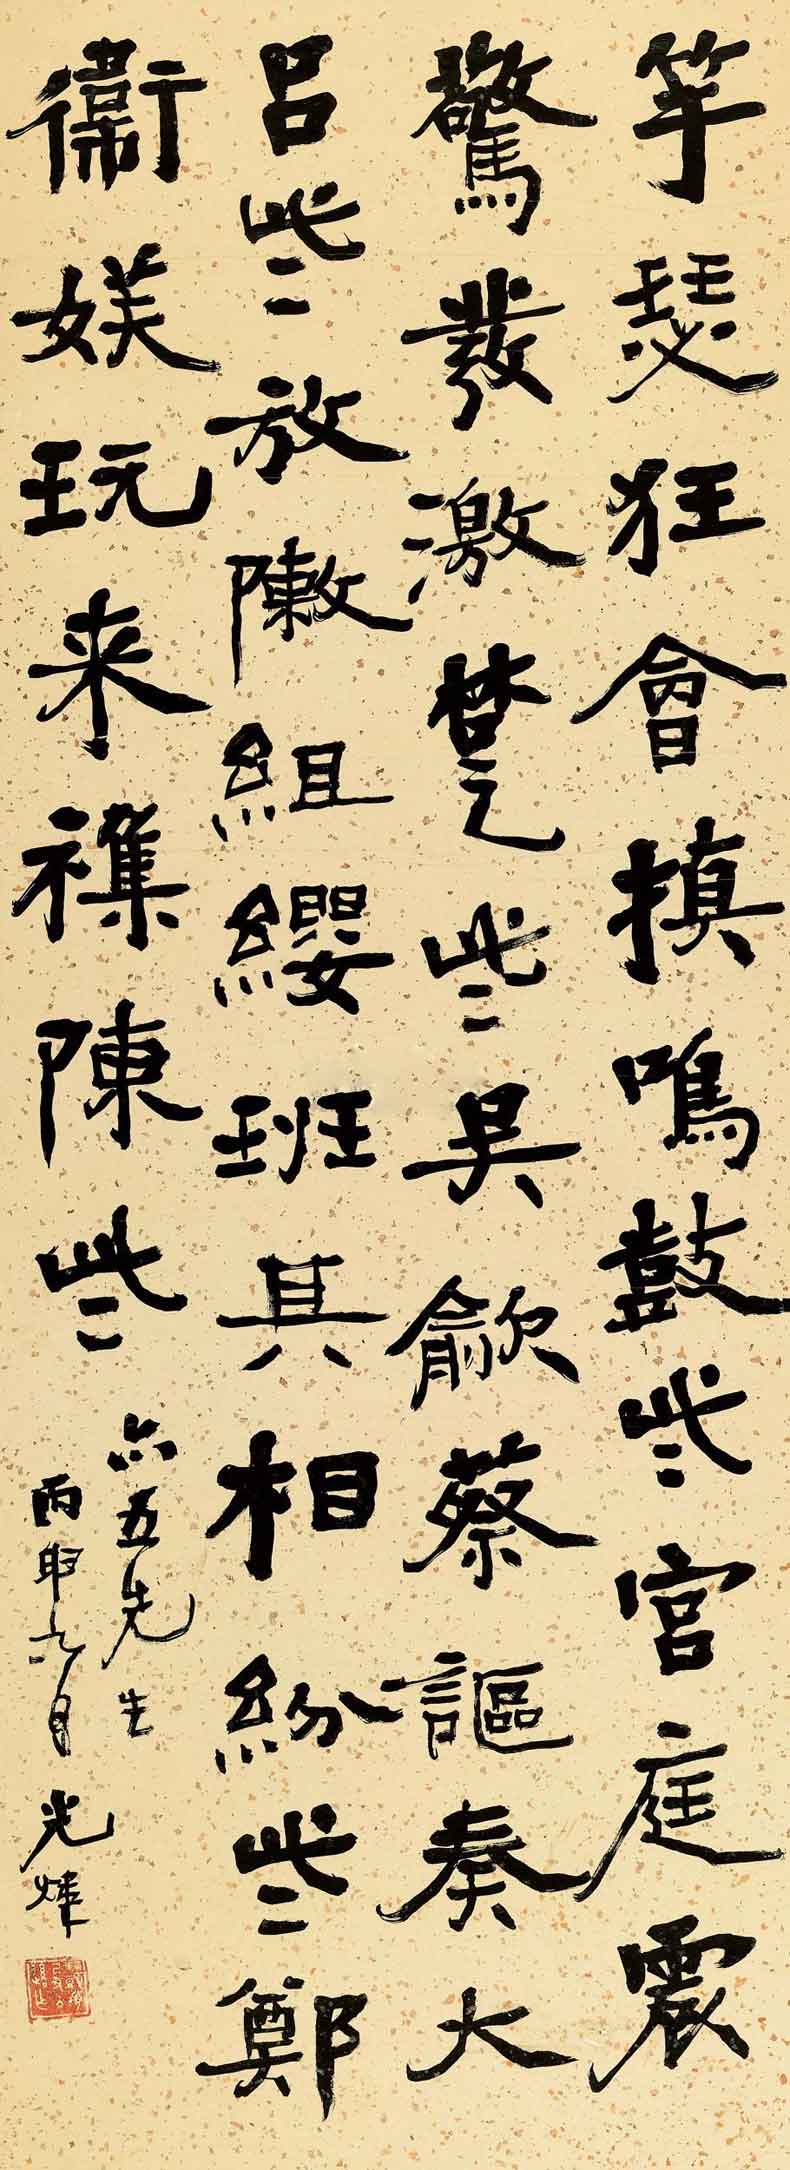 竽瑟狂會搷鳴鼓些宮庭震
驚發激楚些吳歈蔡謳奏大
呂些放敶組纓班其相紛些鄭
衛媄玩来襍陳些
五先生
丙申九月 光煒